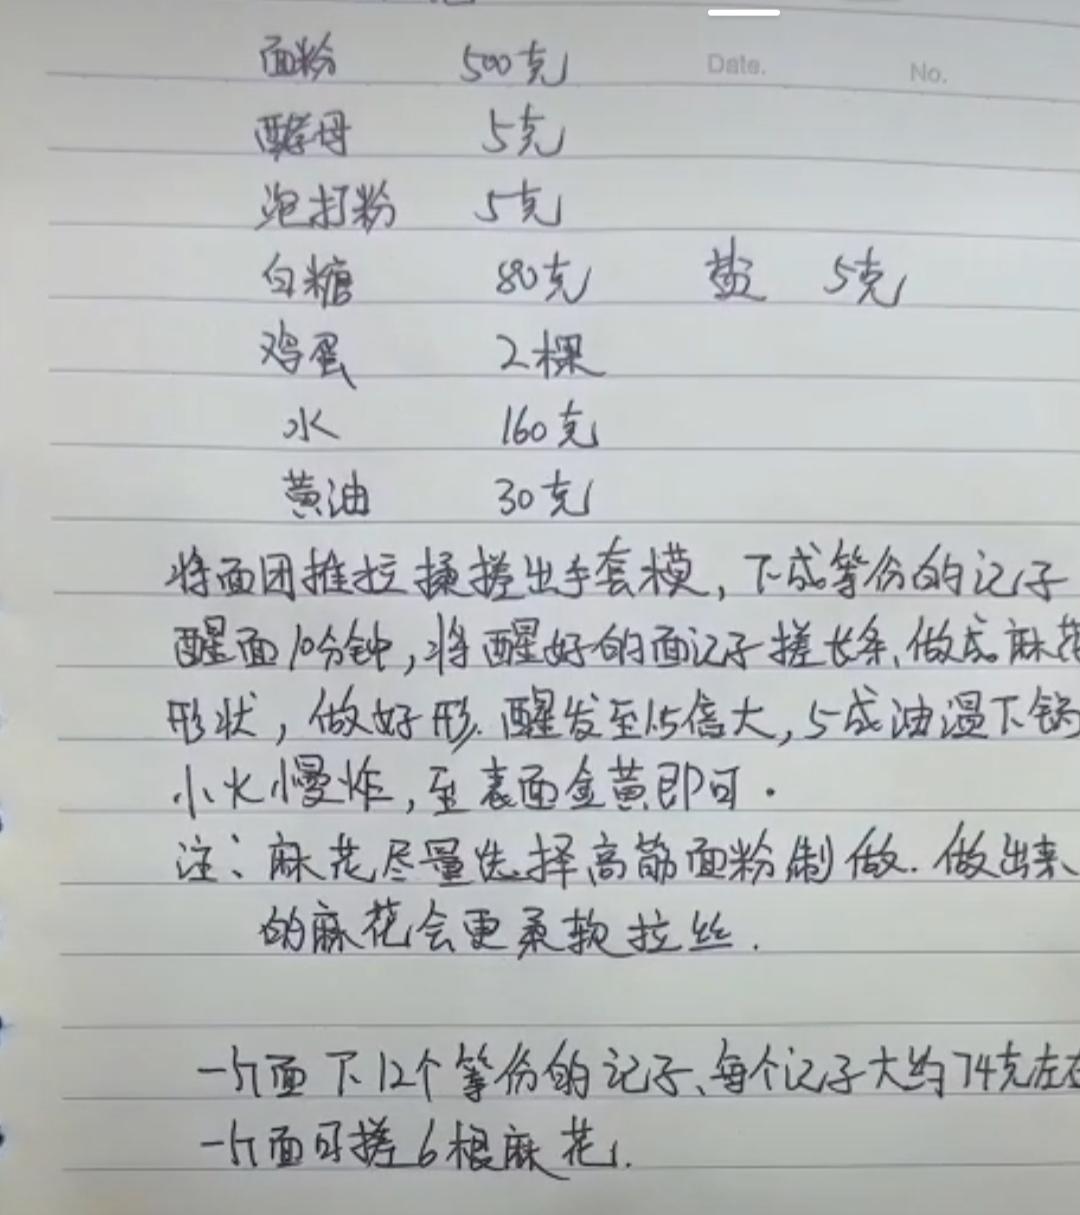 面粉 500克 Date. No.
酵母 5克
泡打粉 5克
白糖 80克 盐 5克
鸡蛋 2棵
水 160克
黄油 30克
将面团推拉揉搓出手套模，下成等份的记子
醒面10分钟，将醒好的面记子搓长条、做成麻花
形状，做好形.醒发至1.5倍大，5成油温下锅
小火慢炸，至表面金黄即可.
注：麻花尽量选择高筋面粉制做.做出来
的麻花会更柔软拉丝.
一斤面下12个等份的记子、每个记子大约74克左右
一斤面可搓6根麻花.